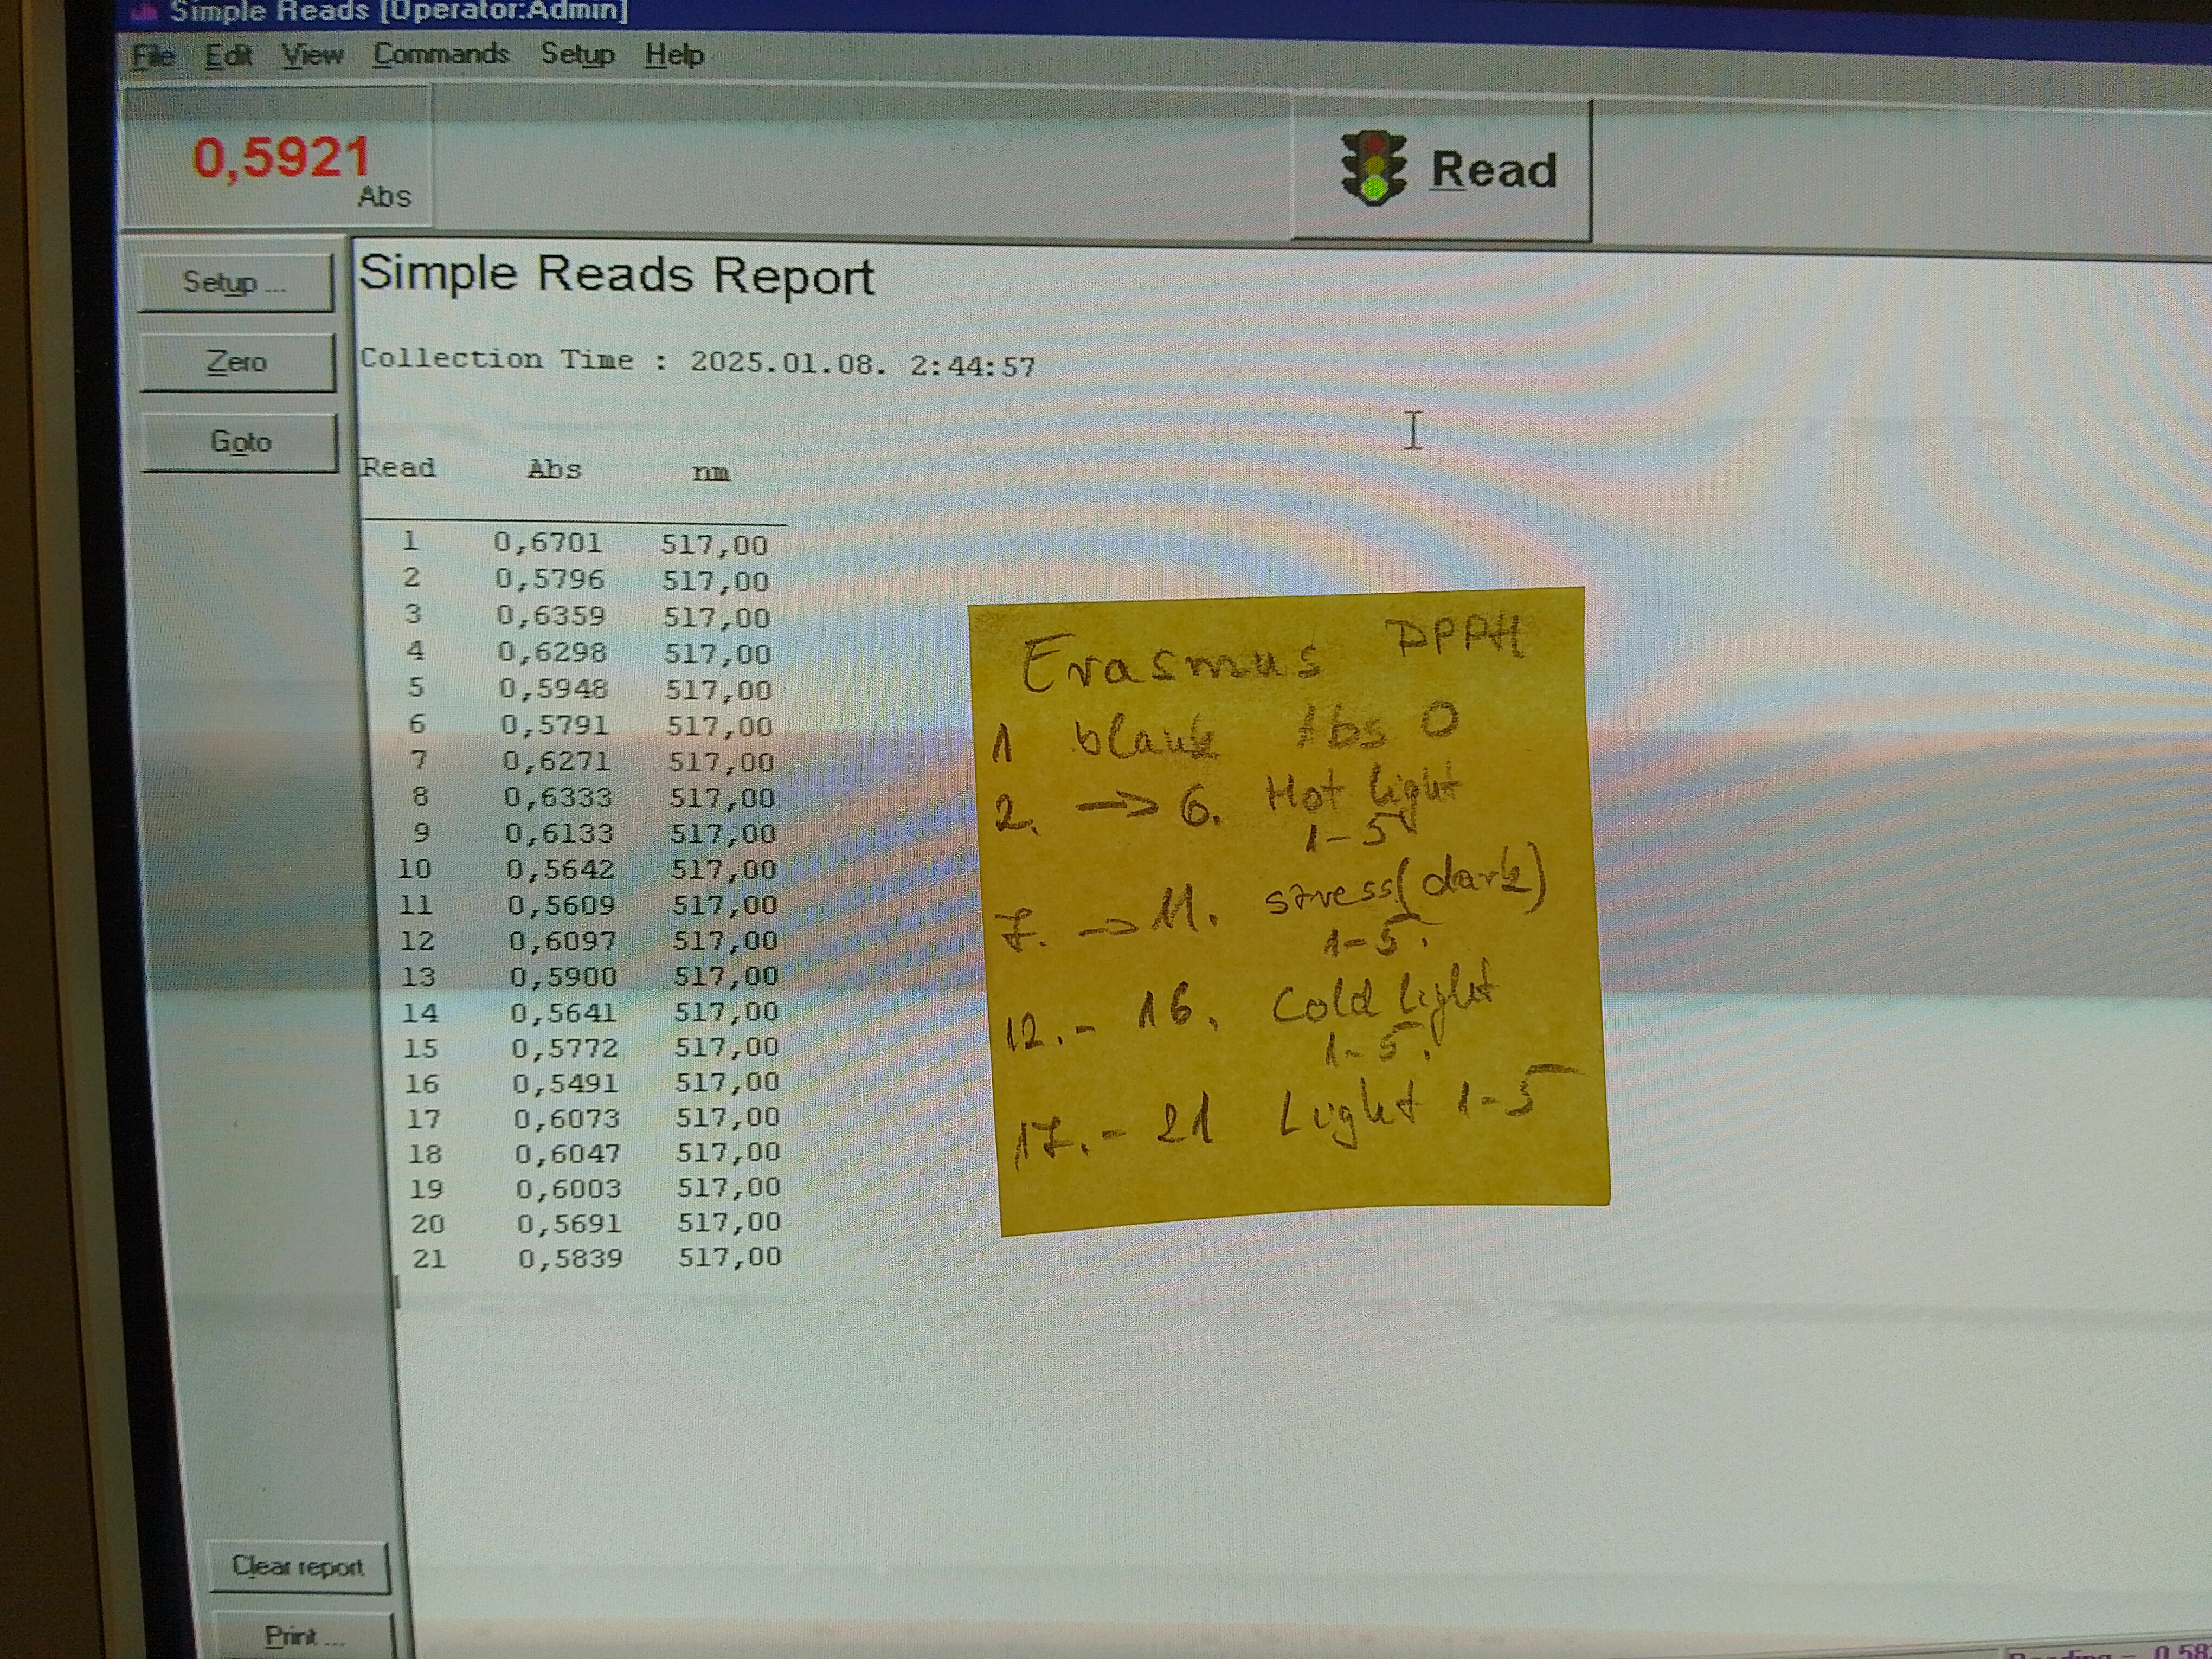 Simple Reads [Operator:Admin]
File Edit View Commands Setup Help
0,5921
Abs
Read
Setup ...
Zero
Goto
Simple Reads Report
Collection Time : 2025.01.08. 2:44:57
Read Abs nm
1 0,6701 517,00
2 0,5796 517,00
3 0,6359 517,00
4 0,6298 517,00
5 0,5948 517,00
6 0,5791 517,00
7 0,6271 517,00
8 0,6333 517,00
9 0,6133 517,00
10 0,5642 517,00
11 0,5609 517,00
12 0,6097 517,00
13 0,5900 517,00
14 0,5641 517,00
15 0,5772 517,00
16 0,5491 517,00
17 0,6073 517,00
18 0,6047 517,00
19 0,6003 517,00
20 0,5691 517,00
21 0,5839 517,00
Erasmus DPPH
1 blank Abs 0
2. -> 6. Hot light
1-5
7. -> 11. stress(dark)
1-5.
12.- 16. Cold Light
1-5.
17.- 21 Light 1-5
Clear report
Print ...